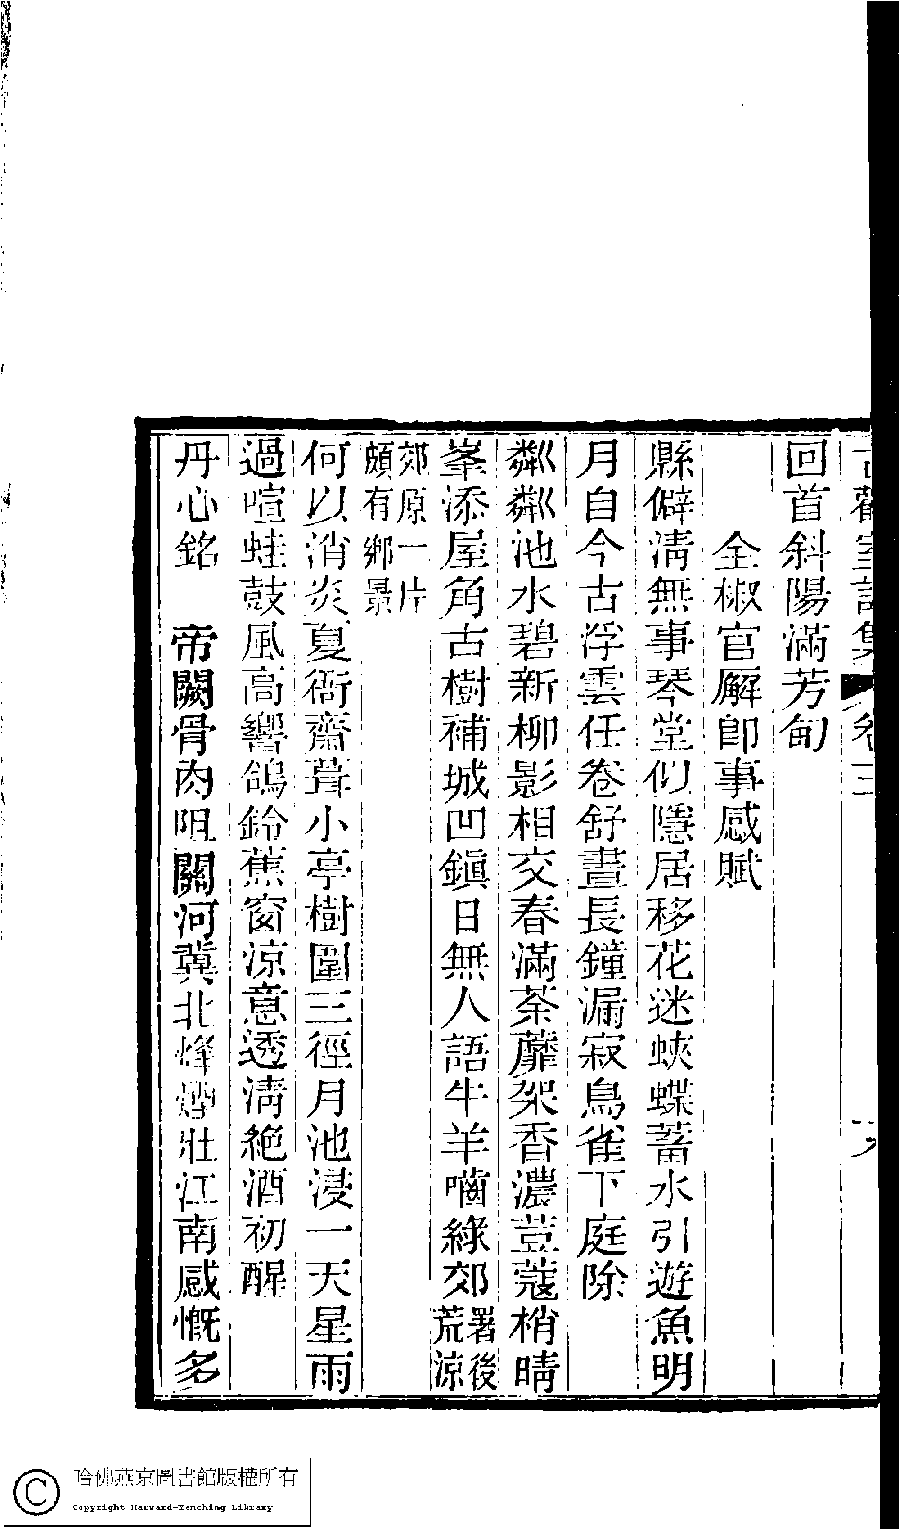 室詩集 卷三
回首斜陽滿芳甸
全椒官廨卽事感賦
縣僻淸無事琴堂似隱居移花迷蛺蝶蓄水引遊魚明
月自今古浮雲任卷舒晝長鐘漏寂鳥雀下庭除
粼粼池水碧新柳影相交春滿荼蘼架香濃荳蔻梢晴
峯添屋角古樹補城凹鎭日無人語牛羊嚙綠郊署後荒涼
郊原一片頗有鄉景
何以消炎夏衙齋葺小亭樹圍三徑月池浸一天星雨
過喧蛙鼓風高響鴿鈴蕉窗涼意透淸絕酒初醒
丹心銘 帝闕骨肉阻關河冀北烽煙壯江南感慨多
哈佛燕京圖書館版權所有
Copyright Harvard-Yenching Library